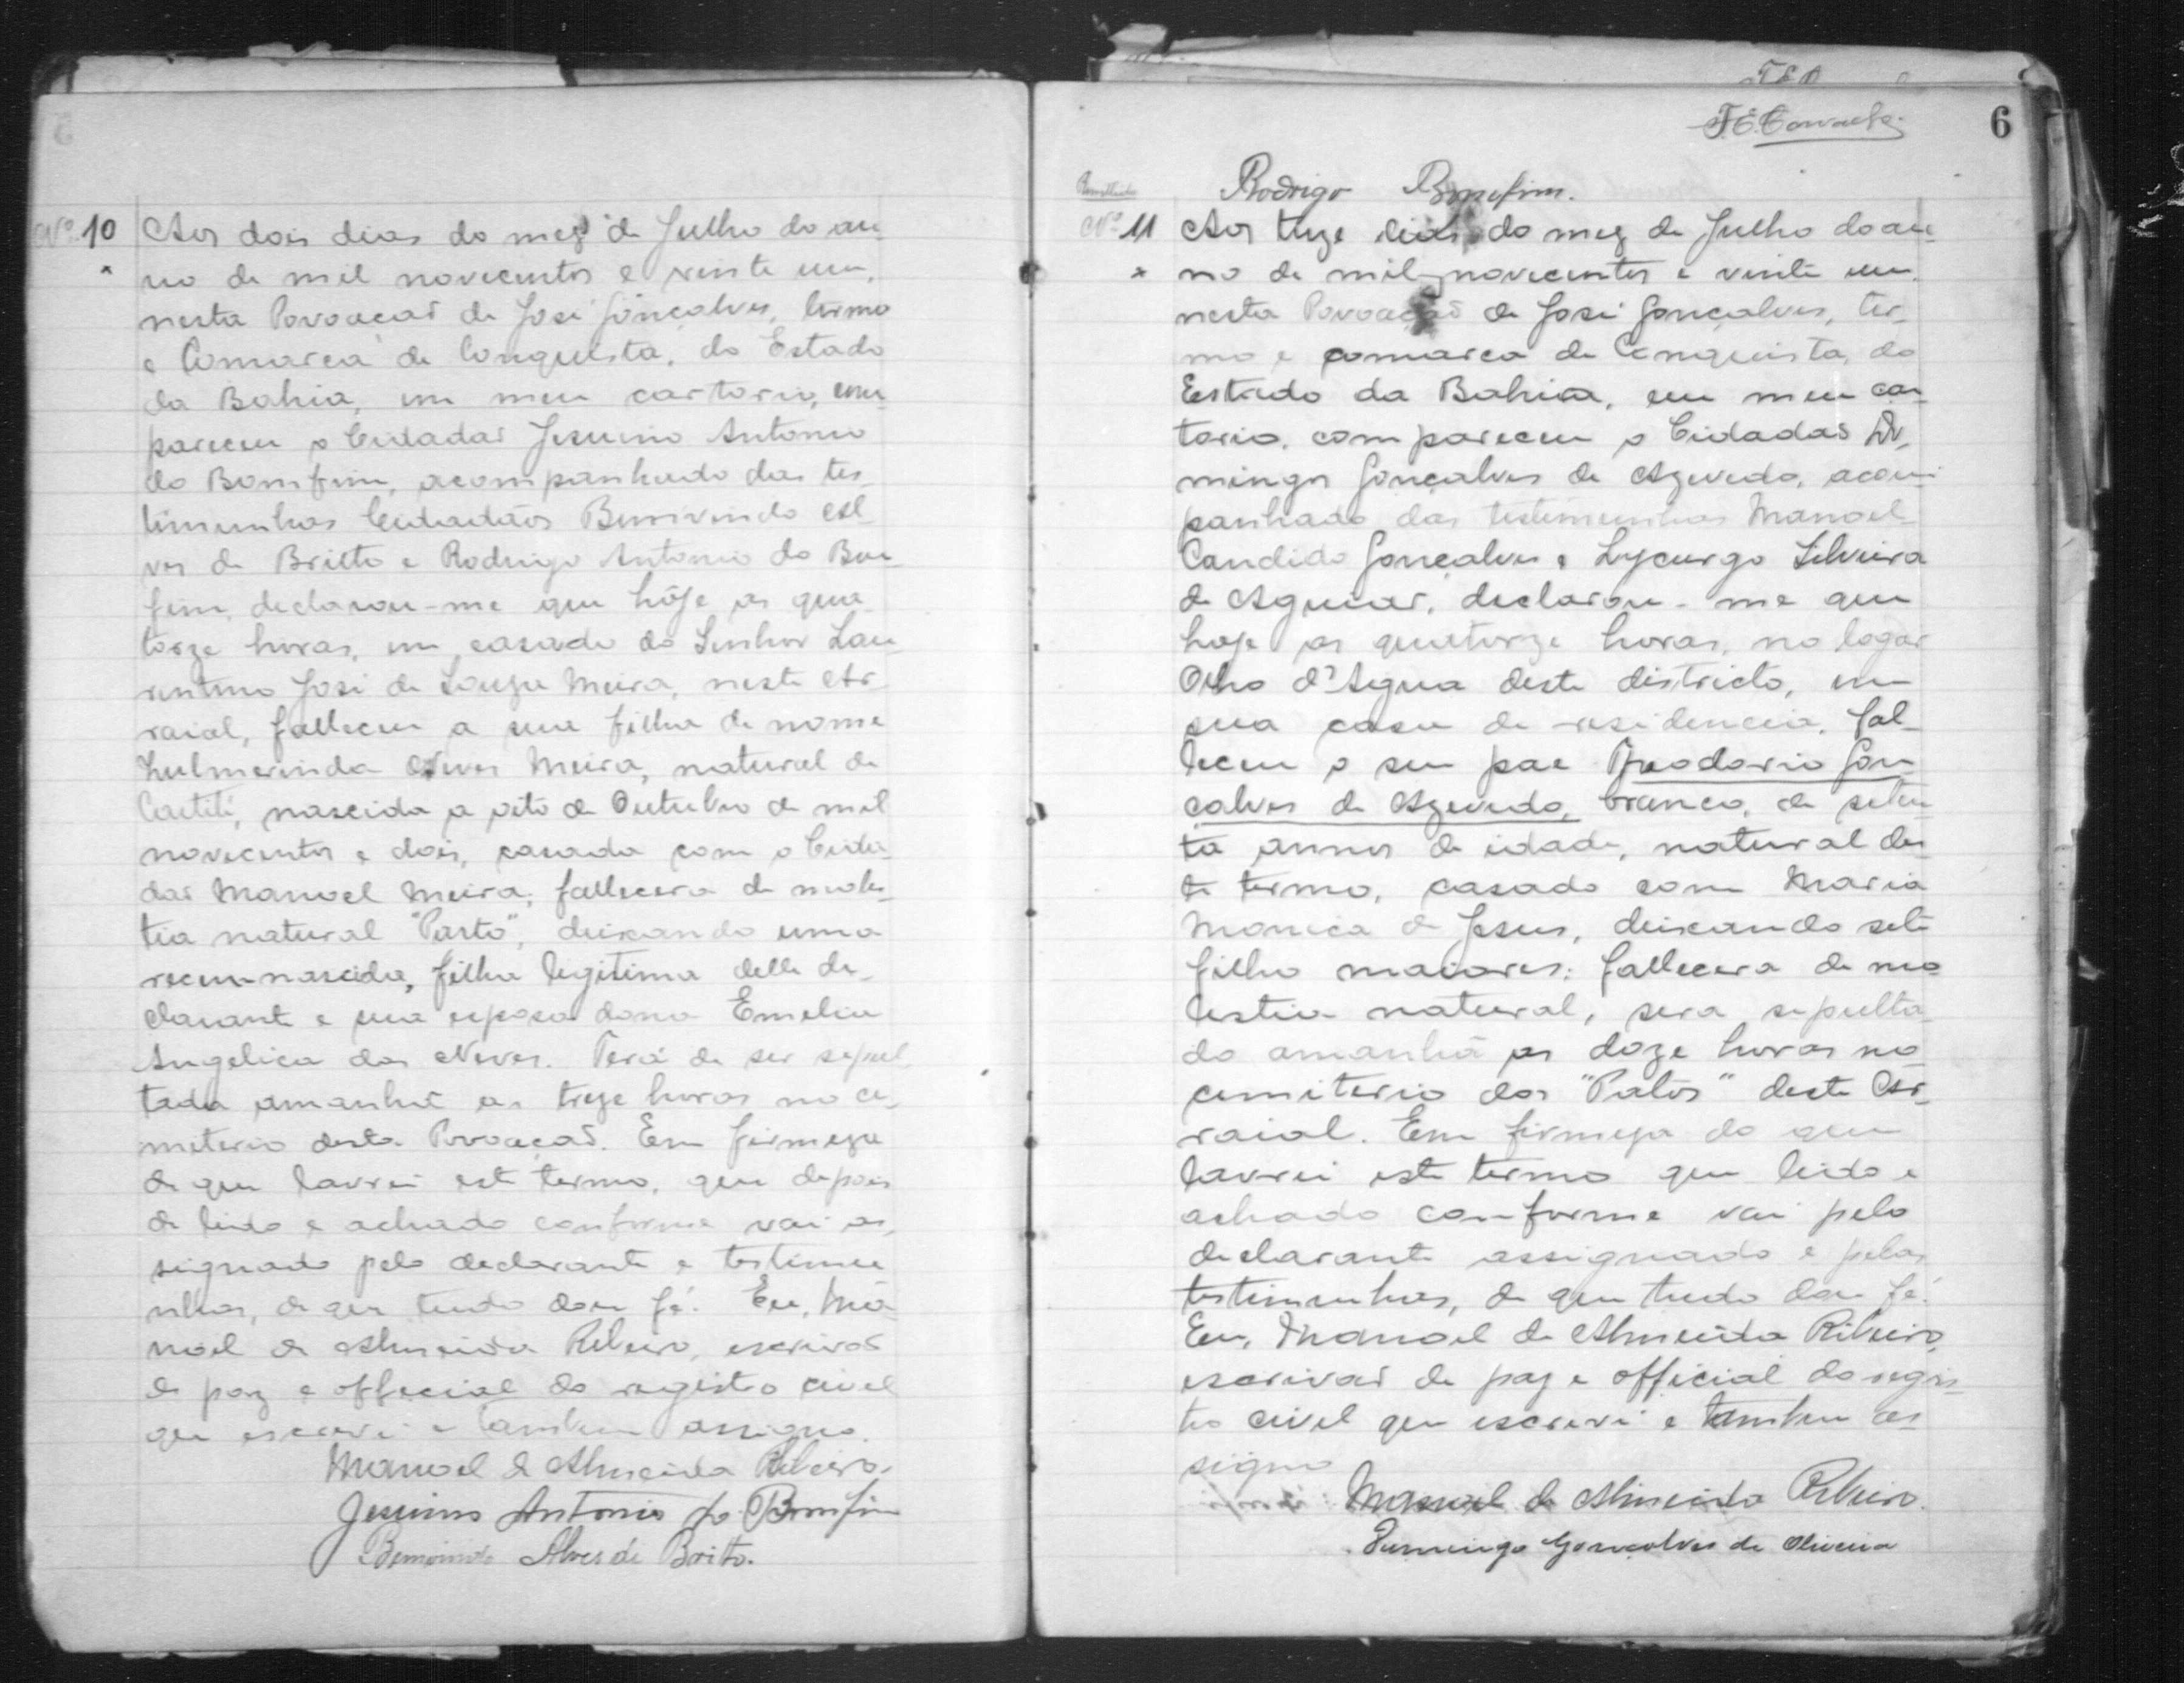 Nº 10
Aos dois dias do mez de Julho do an-
no de mil novecentos e vinte um,
nesta Povoação de José Gonçalves, termo
e Comarca de Conquista, do Estado
da Bahia, em meu cartorio, com-
pareceu o Cidadão Jesuino Antonio
do Bomfim, acompanhado das tes-
timunhas Cidadãos Bemvindo Al-
ves de Britto e Rodrigo Antonio do Bom-
fim, declarou-me que hôje as qua-
torze horas, em casado do Senhor Lau-
rentino José de Souza Meira, neste Ar-
raial, falleceu a sua filha de nome
Neves Meira, natural de
Caetité, nascida a oito de Outubro de mil
novecentos e dois, casada com o Cida-
dão Manoel Meira; fallecera de moles-
tia natural "Parto", deixando uma
recem-nascida, filha legitima delle de-
clarante e sua esposa dona Emelia
Angelica das Neves. Terá de ser sepul-
tada amanhã as treze horas no ce-
miterio desta Povoação. Em firmeza
do que lavrei este termo, que depois
de lido e achado conforme vai as-
signado pelo declarante e testimu-
nhas, de que tudo dou fé. Eu, Ma-
noel de Almeida Ribeiro, escrivão
de paz e official do registro civel
que escrevi e tambem assigno.
Manoel de Almeida Ribeiro.
Jesuino Antonio do Bomfim
Bemvindo Alves de Britto.
6
Rodrigo Bomfim.
Nº 11
Aos treze dias do mez de Julho do an-
no de mil novecentos e vinte um.
nesta Povoação de José Gonçalves, ter-
mo e comarca de Conquista, do
Estado da Bahia, em meu car-
torio, compareceu o Cidadão Do-
mingos Gonçalves de Azevedo, acom-
panhado das testimunhas Manoel
Candido Gonçalves e Lycurgo Silveira
de Aguiar, declarou-me que
hoje as quatorze horas, no logar
Olho d'Agua deste districto, em
sua casa de residencia, fal-
leceu o seu pae Theodorio Gon-
çalves de Azevedo, branco, de seten-
ta annos de idade, natural des-
te termo, casado com Maria
Monica de Jesus, deixando sete
filho maiores; fallecera de mo-
lestia natural, sera sepulta-
do amanhã as doze horas no
cemiterio dos "Patos" deste Ar-
raial. Em firmeza do que
lavrei este termo que lido e
achado conforme vai pelo
declarante assignado e pelas
testimunhas, de que tudo dou fé.
Eu, Manoel de Almeida Ribeiro,
escrivão de paz e official do regis-
tro civel que escrevi e tambem as-
signo
Manoel de Almeida Ribeiro.
Dumingo Gonçolves de Oliveira